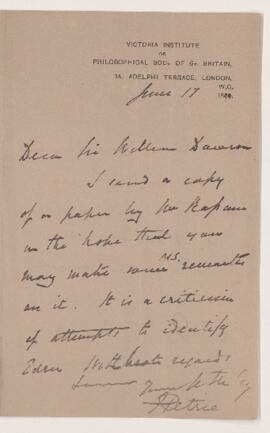 VICTORIA INSTITUTE
OR
PHILOSOPHICAL SOCY. OF GT. BRITAIN,
ADELPHI TERRACE, LONDON,
W.C.
June 17
Dear Sir William Dawson
I send a copy
of a paper by Mr Rassam
in the hope that you
may make some MS. remarks
on it. It is a criticism
of attempts to identify
Eden With best regards
F Petrie